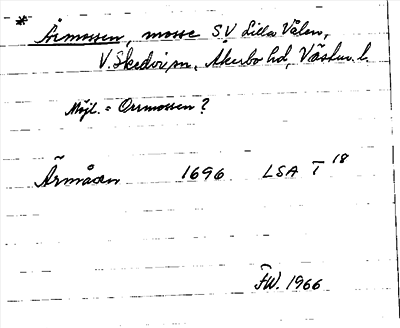 * Årmossen, mosse SV Lilla Vålen,
V. Skedvi sn, Åkerbo hd, Västm. l.
Möjl. = Orrmossen?
Ärmåsen 1696 LSA T 18
FW. 1966